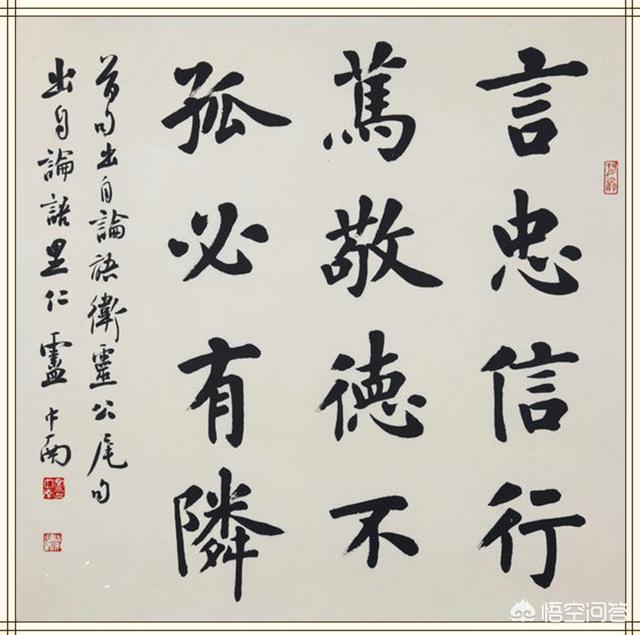 言忠信行
篤敬德不
孤必有隣
首句出自論語衛靈公尾句
出自論語里仁 盧中南
悟空问答